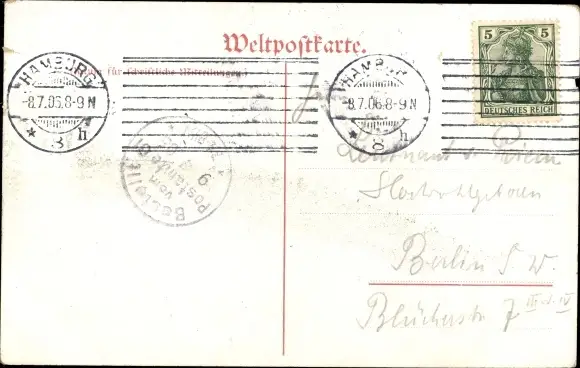 Weltpostkarte.
für schriftliche Mitteilungen
HAMBURG
-8.7.06.8-9N
* 8 h
HAMBURG
-8.7.06.8-9N
* 8 h
5 5
DEUTSCHES REICH
Bestellt
vom
Postamte
9
Leutnant v.
Hochwohlgeboren
Berlin S W.
Blücherstr 7 III u. IV